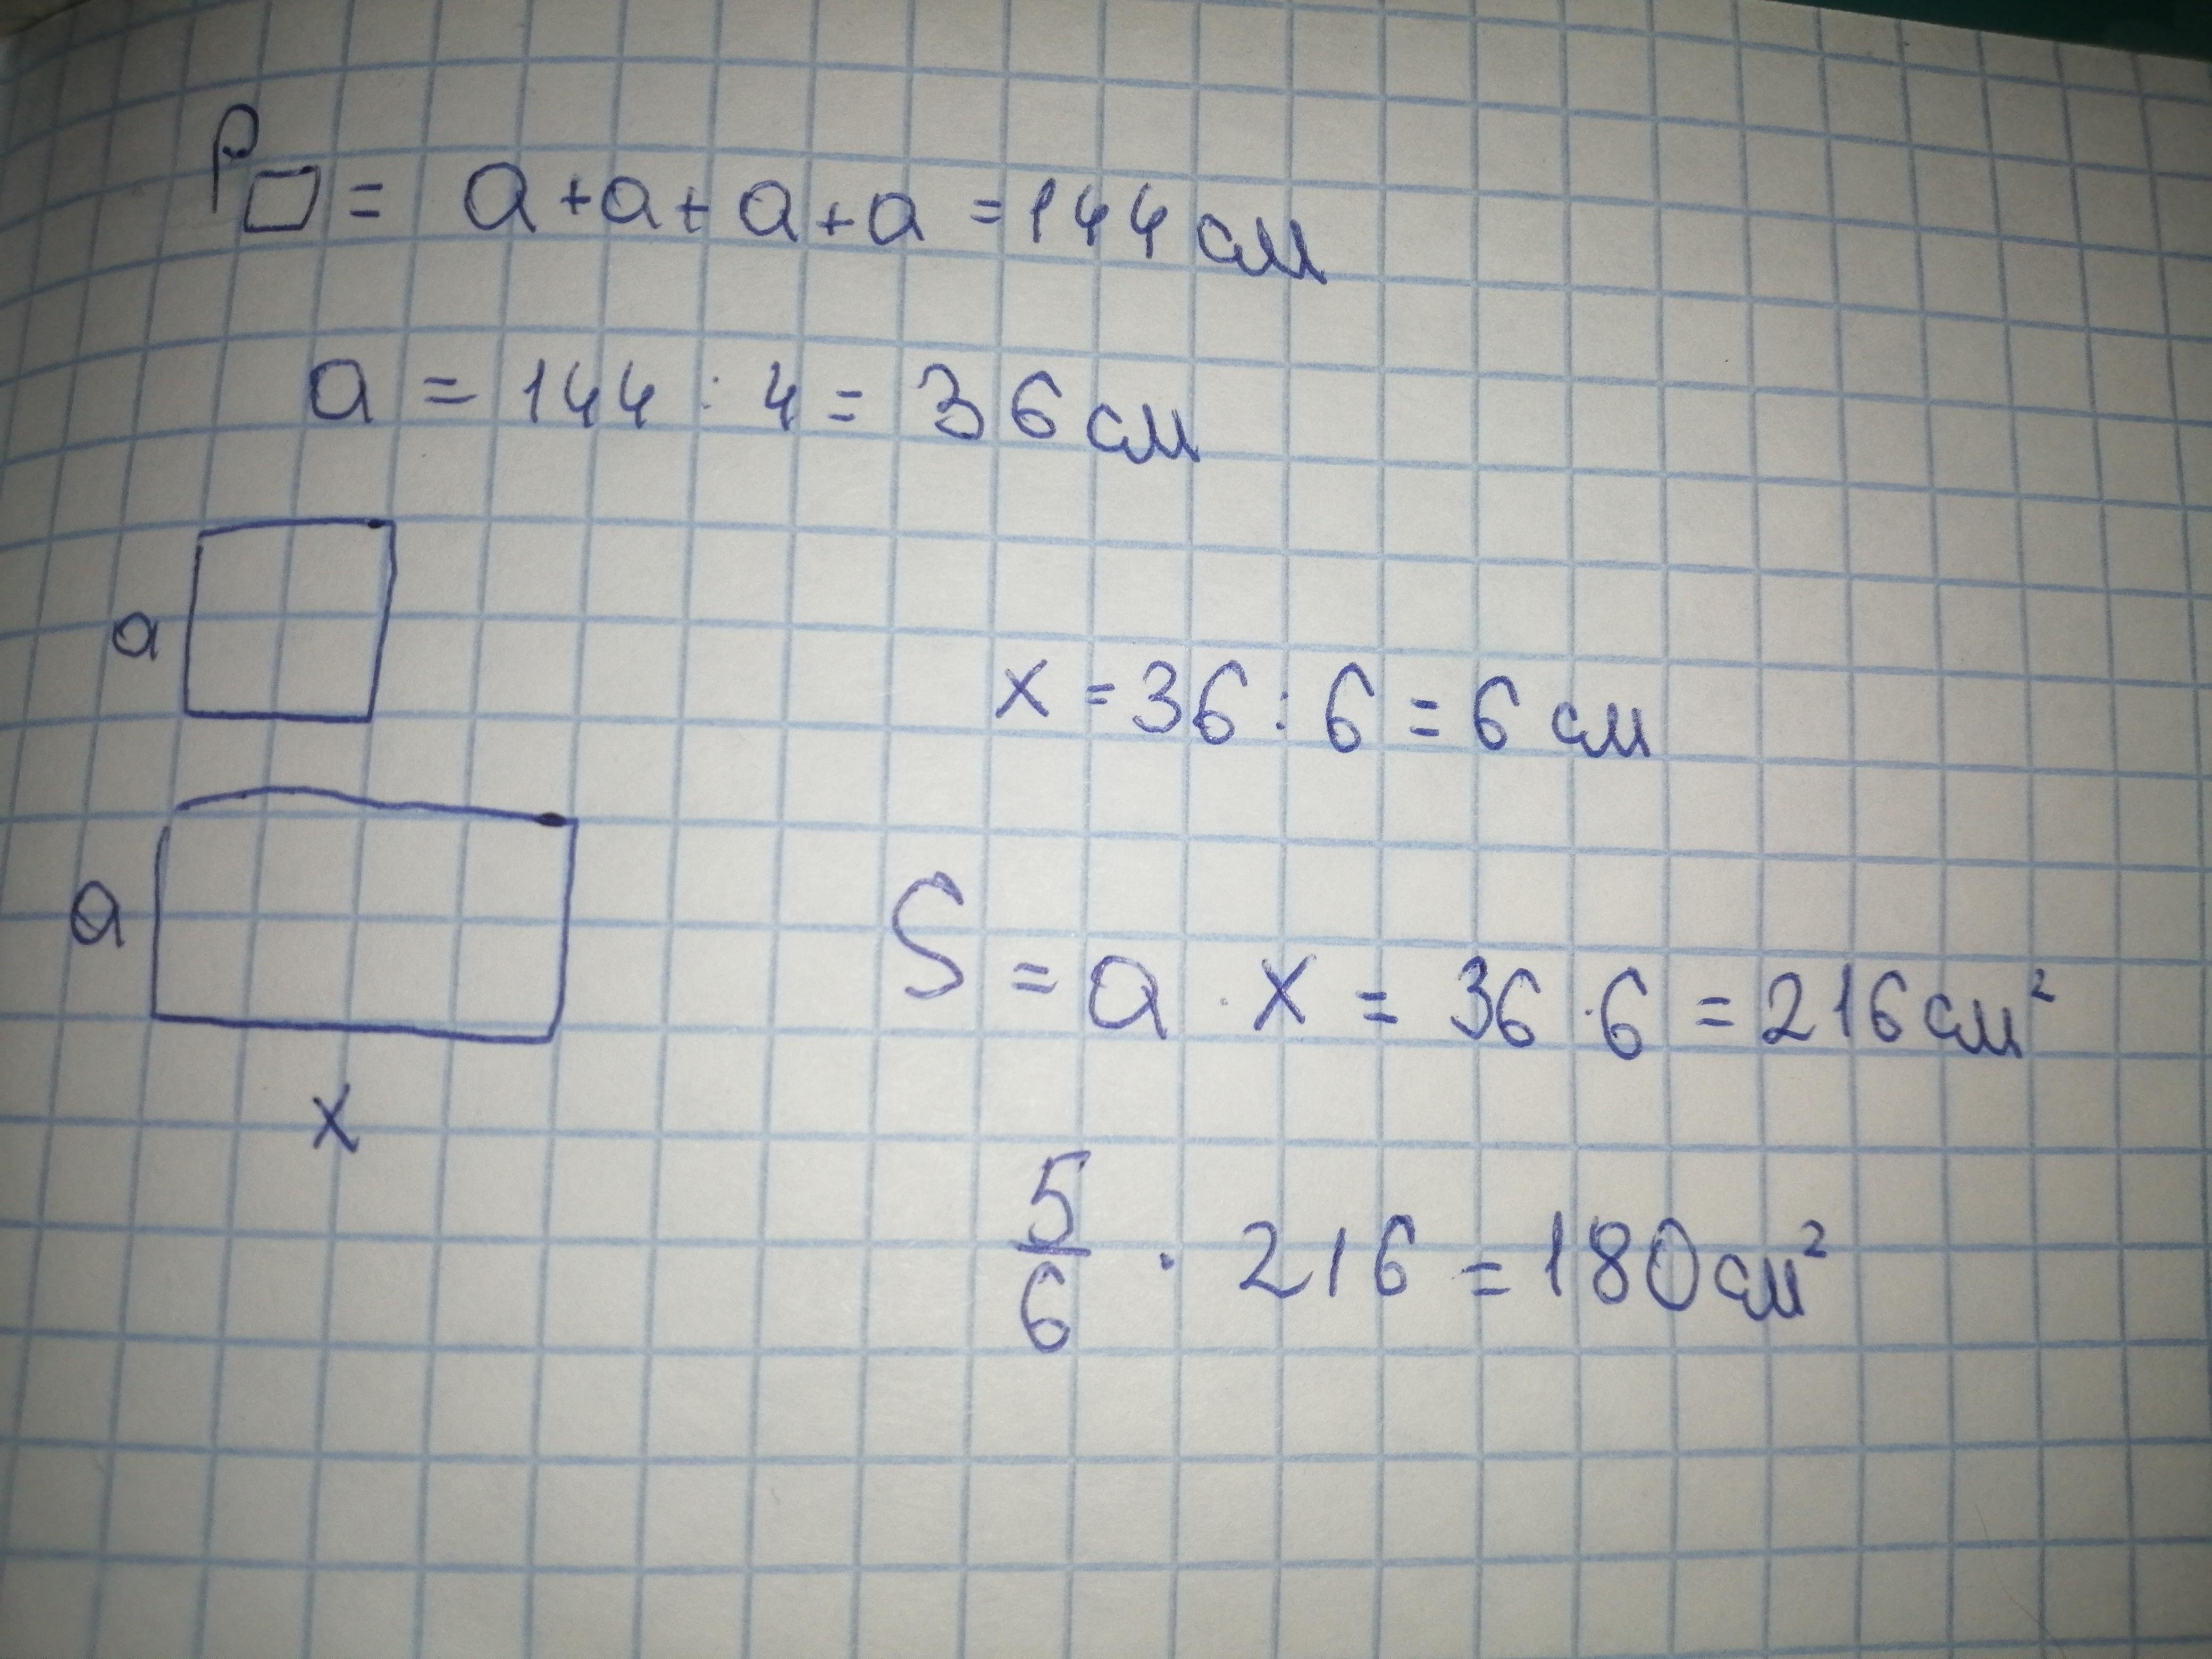 P□ = a + a + a + a = 144 см
a = 144 : 4 = 36 см
a
x = 36 : 6 = 6 см
a
S = a · x = 36 · 6 = 216 см²
x
5/6 · 216 = 180 см²